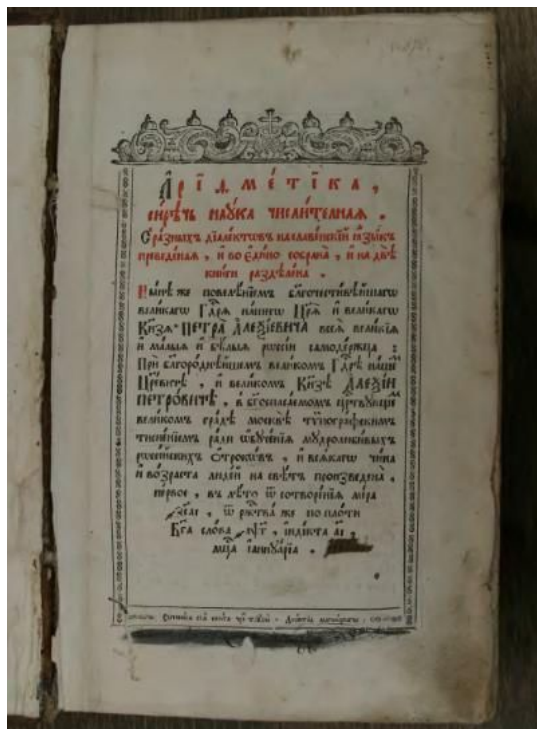 А҆ріѳме́тіка,
сирѣ́чь наꙋ́ка числи́телнаѧ.
С̾ ра́зныхъ дїале́ктѡвъ на славе́нскїй ѧ҆зы́къ
преведе́наѧ, и҆ во є҆ди́но собрана̀, и҆ на двѣ̀
кни̑ги раздѣле́на.
Ны́нѣ же повелѣ́нїемъ бл҃гочести́вѣйшагѡ
вели́кагѡ Гдⷭ҇рѧ на́шегѡ Цр҃ѧ̀ и҆ вели́кагѡ
Кн҃зѧ ПЕТРА̀ А҆ЛЕѮІ́ЕВИЧА всеѧ̀ вели́кїѧ
и҆ ма́лыѧ и҆ бѣ́лыѧ рѡссі́и самоде́ржца:
При бл҃горо́днѣйшемъ вели́комъ Гдⷭ҇рѣ на́шемъ
Цр҃е́вичѣ, и҆ вели́комъ Кн҃зѣ А҆ЛЕѮІ́И
ПЕТРО́ВИЧѢ, в̾ бг҃оспаса́емомъ црⷭ҇твꙋющемъ
вели́комъ гра́дѣ москвѣ̀ тѷпогра́фскимъ
тисне́нїемъ ра́ди ѡ҆бꙋче́нїѧ мꙋдролюби́выхъ
рѡссі́йскихъ ѻ҆́трокѡвъ, и҆ всѧ́кагѡ чи́на
и҆ во́зраста люде́й на свѣ́тъ произведена̀,
пе́рвое, въ лѣ́то ѿ сотворе́нїѧ мі́ра
҂зсаі, ѿ рж҇тва̀ же по пло́ти
Бг҃а сло́ва ҂аѱг, і҆ндї́кта аі,
мцⷭ҇а і҆аннꙋа́рїа.